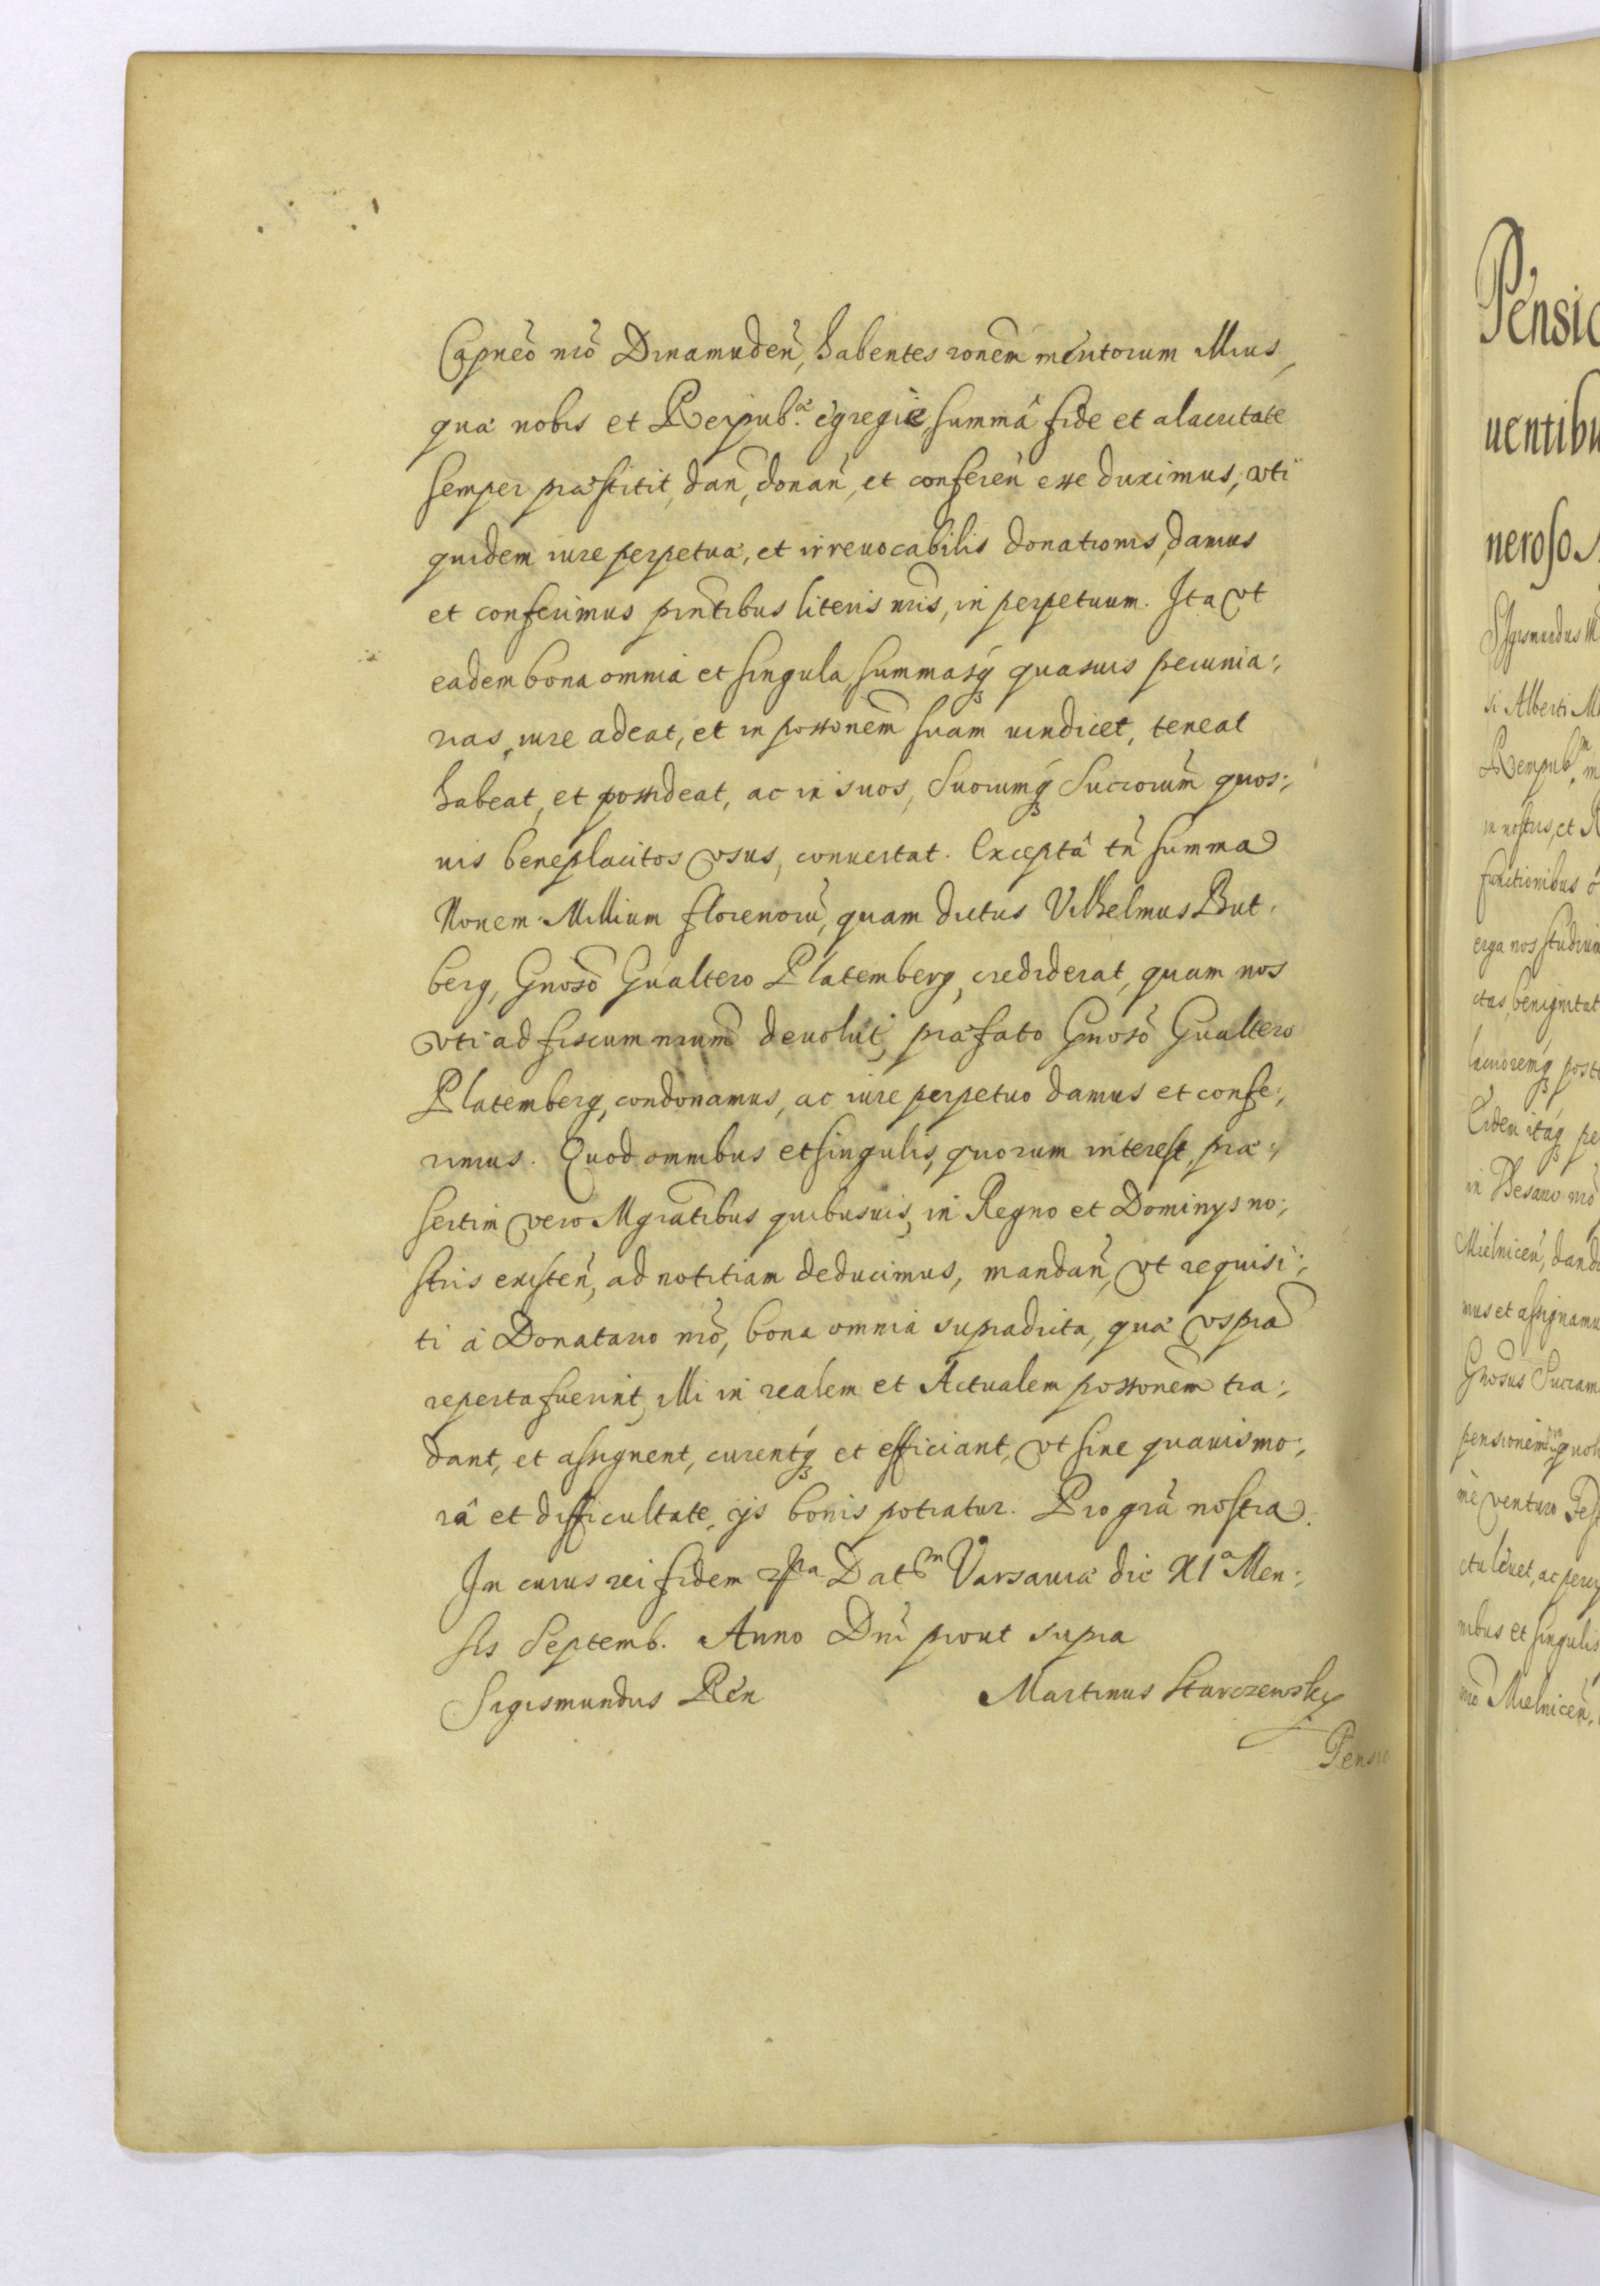 Capneo nro Dinamuden, habentes ronem meritorum illius,
quæ nobis et Reipub.æ egregie, summâ fide et alacritate
semper præstitit, dan, donan, et conferen esse duximus, uti
quidem iure perpetuæ, et irreuocabilis donationis, damus
et conferimus pntibus literis nris, in perpetuum. Ita vt
eadem bona omnia et singula, summasq quasuis pecunia:,
rias, iure adeat, et in possonem suam uindicet, teneat
habeat, et possideat, ac in suos, Suorumq Succorum quos:,
uis beneplacitos vsus, conuertat. Exceptâ tn summa
Nouem Millium florenoru, quam dictus Vilhelmus But
berg, Gnoso Gualtero Platemberg, crediderat, quam nos
vti ad fiscum nrum deuolut, præfato Gnoso Gualtero
Platemberg, condonamus, ac iure perpetuo damus et confe:,
rimus. Quod omnibus et singulis, quorum interest, præ:,
sertim vero Mgratibus quibusuis, in Regno et Dominys no:,
stris existen, ad notitiam deducimus, mandan, vt requisi:,
ti à Donatario nro, bona omnia supradicta, quæ vspia
reperta fuerint, illi in realem et Actualem possonem tra:,
dant, et assignent, curentq et efficiant, vt sine quauis mo:,
râ et difficultate, ijs bonis potiatur. Pro gra nostra.
In cuius rei fidem Dat Varsauiæ die XIa Men:,
sis Septemb. Anno Dni prout supra
Sigismundus Rex
Martinus Starczewsky
Pensio
Pensio
uentibu
neroso
Sigismundus
si Alberti
Reipub m
in nostris, et
functionibus
erga nos studium
ctas, benignitat
Eidem itaq pe
in nro
Mielnicen, dand
mus et assignamu
Gnosus Sucram
pensionem quot
ne venturo Fest
ctu leuet, ac perci
nibus et singulis
nro Mielnicen,